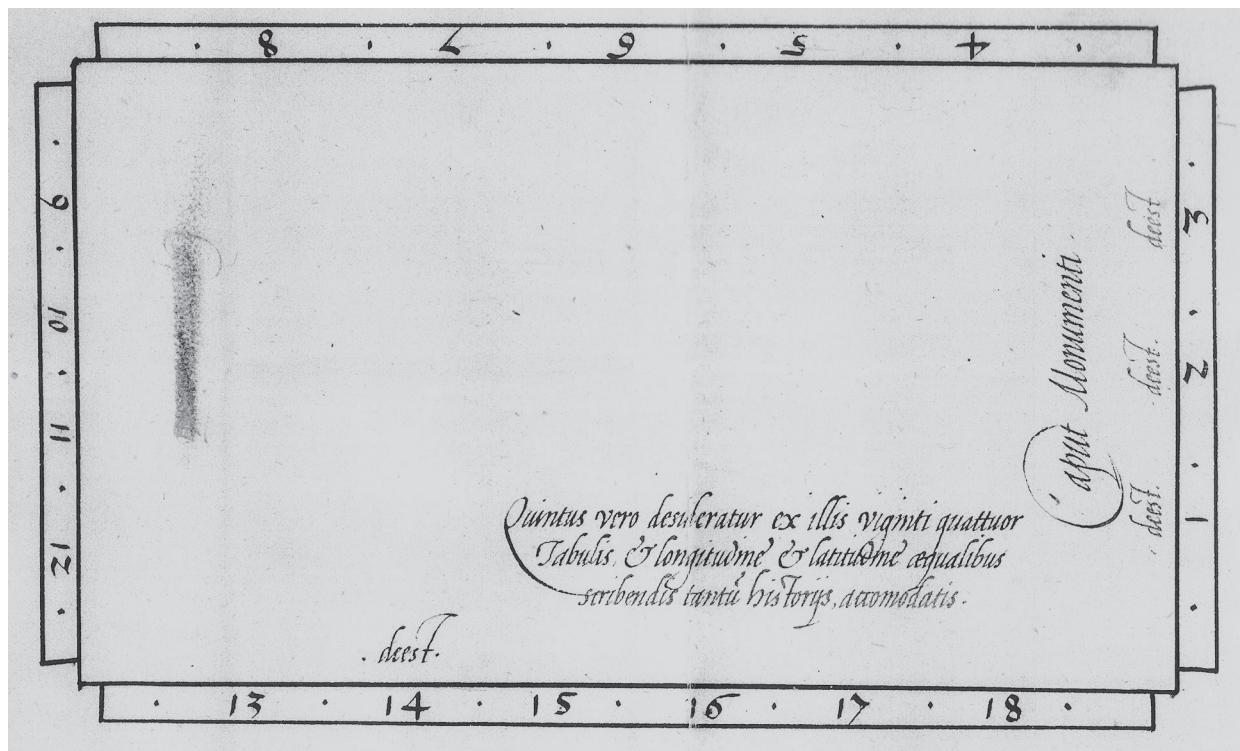 . 8 . 7 . 6 . 5 . 4 .
. 9 . 10 . 11 . 12 .
. 3 . 2 . 1 .
deest
deest.
deest.
Caput Monumenti.
Quintus vero desideratur ex illis viginti quattuor
Tabulis, & longitudine & latitudine æqualibus
scribendis tantū historijs, accomodatis.
. deest.
. 13 . 14 . 15 . 16 . 17 . 18 .